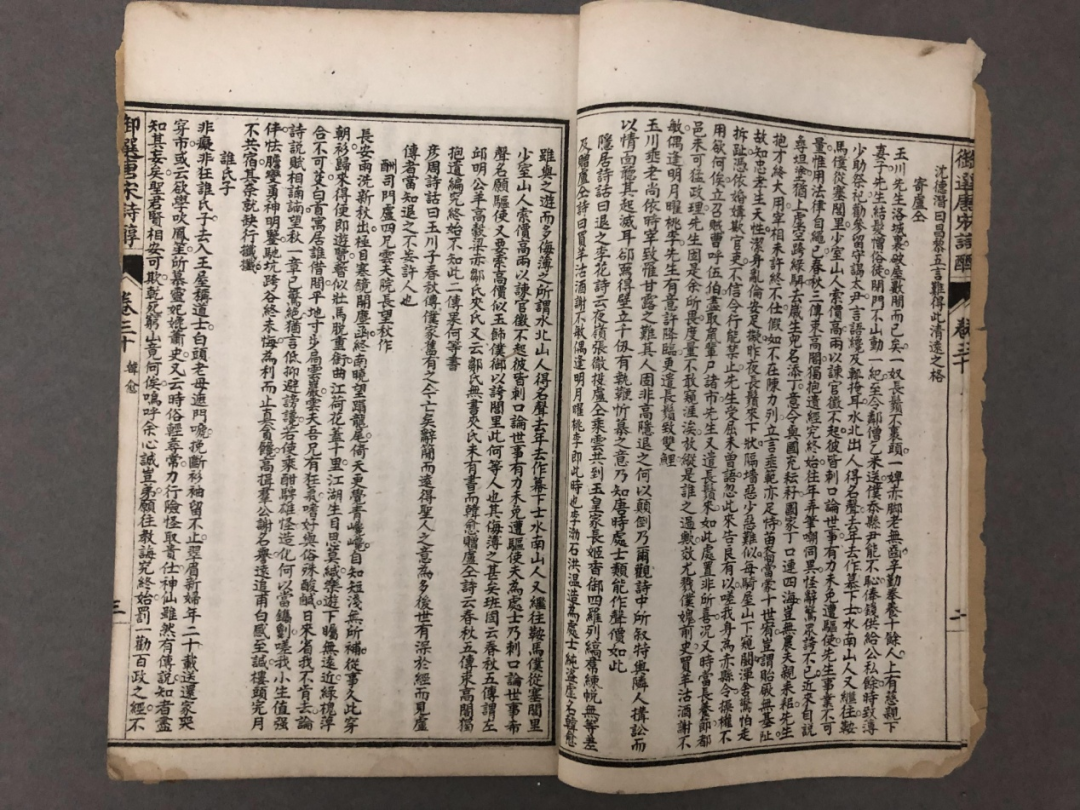 御選唐宋詩醇
卷三十
二
沈德潛曰昌黎五言難得此清遠之格
寄盧仝
玉川先生洛城裏破屋數間而已矣一奴長鬚不裹頭一婢赤腳老無齒辛勤奉養十餘人上有慈親下
妻子先生結髮憎俗徒閉門不出動一紀至令鄰僧乞米送僕忝縣尹能不恥俸錢供給公私餘時致薄
少助祭祀勸參留守謁大尹言語纔及輒掩耳水北山人得名聲去年去作幕下士水南山人又繼往鞍
馬僕從塞閭里少室山人索價高兩以諫官徵不起彼皆刺口論世事有力未免遭驅使先生事業不可
量惟用法律自繩己春秋三傳束高閣獨抱遺經究終始往年弄筆嘲同異怪辭驚眾謗不已近來自說
尋坦塗猶上虛空跨綠駬去歲生兒名添丁意令與國充耘耔國家丁口連四海豈無農夫親耒耜先生
抱才終大用宰相未許終不仕假如不在陳力列立言垂範亦足恃苗裔當蒙十世宥豈謂貽厥無基阯
故知忠孝生天性潔身亂倫安足擬昨夜長鬚來下狀隔墻惡少惡難似每騎屋山下窺闞渾舍驚怕走
折趾憑依婚媾欺官吏不信令行能禁止先生受屈未曾語忽此來告良有以嗟我身為赤縣令操權不
用欲何俟立召賊曹呼伍伯盡取鼠輩尸諸市先生又遣長鬚來如此處置非所喜況又時當長養節都
邑未可猛政理先生固是余所畏度量不敢窺涯涘放縱是誰之過歟效尤戮僕愧前史買羊沽酒謝不
敏偶逢明月曜桃李先生有意許降臨更遣長鬚致雙鯉
玉川垂老尚依時宰致罹甘露之難其人固非高隱退之何以顛倒乃爾觀詩中所叙特與隣人搆訟而
以情面聽其起滅耳卻寫得壁立千仞有執鞭忻慕之意乃知唐時處士類能作聲價如此
隱居詩話曰退之李花詩云夜領張徹投盧仝乘雲共到玉皇家長姬香御四羅列縞裙練帨無等差
及贈盧仝詩曰買羊沽酒謝不敏偶逢明月曜桃李即此時也李渤石洪温造為處士純盜虛名韓愈
雖與之遊而多侮薄之所謂水北山人得名聲去年去作幕下士水南山人又繼往鞍馬僕從塞閭里
少室山人索價高兩以諫官徵不起彼皆刺口論世事有力未免遭驅使夫為處士乃刺口論世事希
聲名願驅使又要索高價似玉飾僕御以誇閭里此何等人也其侮薄之甚矣班固云春秋五傳謂左
邱明公羊高穀梁赤鄒氏夾氏又云鄒氏無書夾氏未有書而韓愈贈盧仝詩云春秋五傳束高閣獨
抱遺編究終始不知此二傳果何等書
彦周詩話曰玉川子春秋傳僕家舊有之今亡矣辭簡而遠得聖人之意為多後世有深於經而見盧
傳者當知退之不妄許人也
酬司門盧四兄雲夫院長望秋作
長安雨洗新秋出極目寒鏡開塵函終南曉望蹋龍尾倚天更覺青巉巉自知短淺無所補從事久此穿
朝衫歸來得便即遊覽暫似壯馬脫重銜曲江荷花蓋十里江湖生目思莫緘樂遊下矚無遠近綠槐萍
合不可芟白首寓居誰借問平地寸步扃雲巖雲夫吾兄有狂氣嗜好與俗殊酸鹹日來省我不肯去論
詩說賦相諵諵望秋一章已驚絕猶言低抑避謗讒若使乘酣騁雄怪造化何以當鐫劖嗟我小生值強
伴怯膽變勇神明鑒馳坑跨谷終未悔為利而止真貪饞高揖羣公謝名譽遠追甫白感至諴樓頭完月
不共宿其奈就缺行攕攕
誰氏子
非癡非狂誰氏子去入王屋稱道士白頭老母遮門啼挽斷衫袖留不止翠眉新婦年二十載送還家哭
穿市或云欲學吹鳳笙所慕靈妃媲蕭史又云時俗輕尋常力行險怪取貴仕神仙雖然有傳說知者盡
知其妄矣聖君賢相安可欺乾死窮山竟何俟嗚呼余心誠豈弟願往教誨究終始罰一勸百政之經不
御選唐宋詩醇
卷三十
韓愈
三